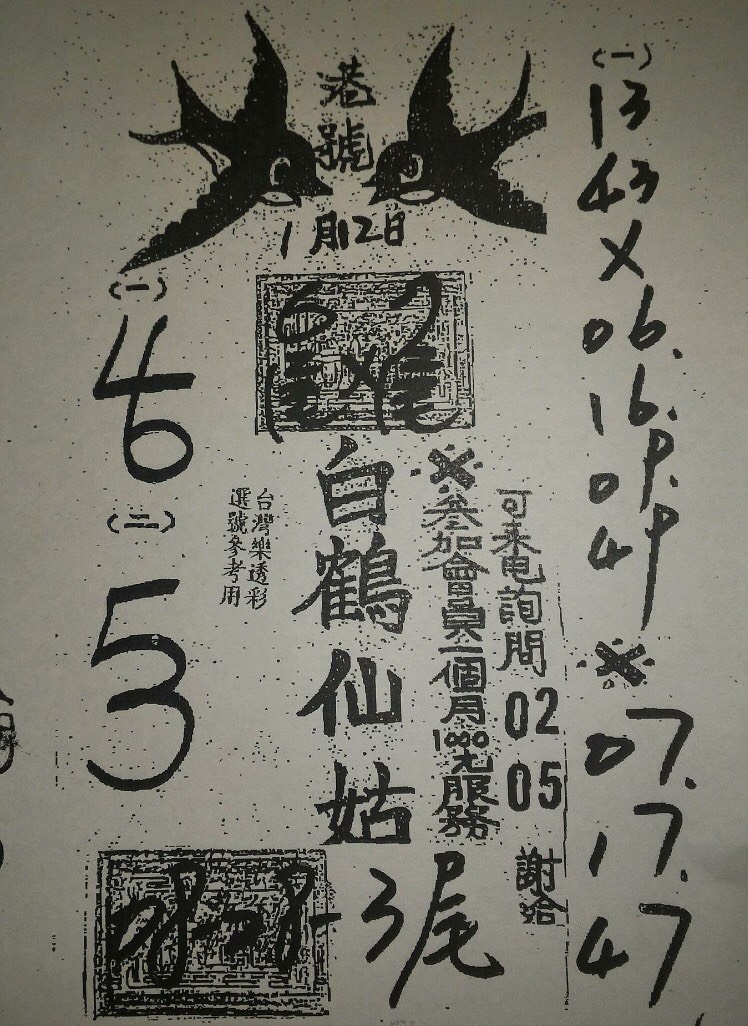 港號
1月12日
(一)
13
43
X
06.
16.
09.
49
※
07.
17.
47
可来电詢問
02
05
謝哈
※
參加會員一個月1000元服務
6 7
尾 尾
白鶴仙姑
3尾
台灣樂透彩
選號參考用
(一)
46
(二)
53